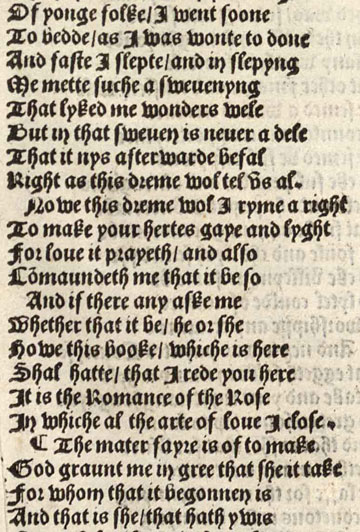 Of yonge folke / I went soone
To bedde / as I was wonte to done
And faste I slepte / and in slepyng
Me mette suche a sweuenyng
That lyked me wonders wele
But in that sweuen is neuer a dele
That it nys afterwarde befal
Right as this dreme wol tel vs al.
Nowe this dreme wol I ryme a right
To make your hertes gaye and lyght
For loue it prayeth / and also
Cõmaundeth me that it be so
And if there any aske me
Whether that it be / he or she
Howe this booke / whiche is here
Shal hatte / that I rede you here
It is the Romance of the Rose
In whiche al the arte of loue I close.
¶ The mater fayre is of to make
God graunt me in gree that she it take
For whom that it begonnen is
And that is she / that hath ywis